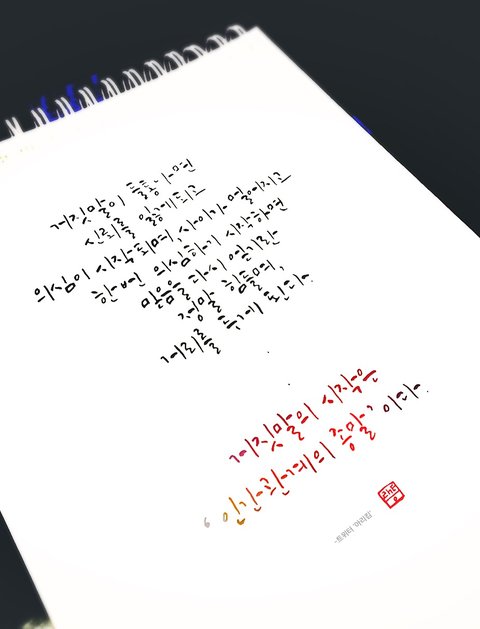 거짓말이 들통나면
신뢰를 잃게되고
의심이 시작되며, 사이가 멀어지고
한번 의심하기 시작하면
믿음을 다시 얻기란
정말 힘들며,
거리를 두게 된다.
거짓말의 시작은
'인간관계의 종말' 이다.
-트위터 '마리킴'